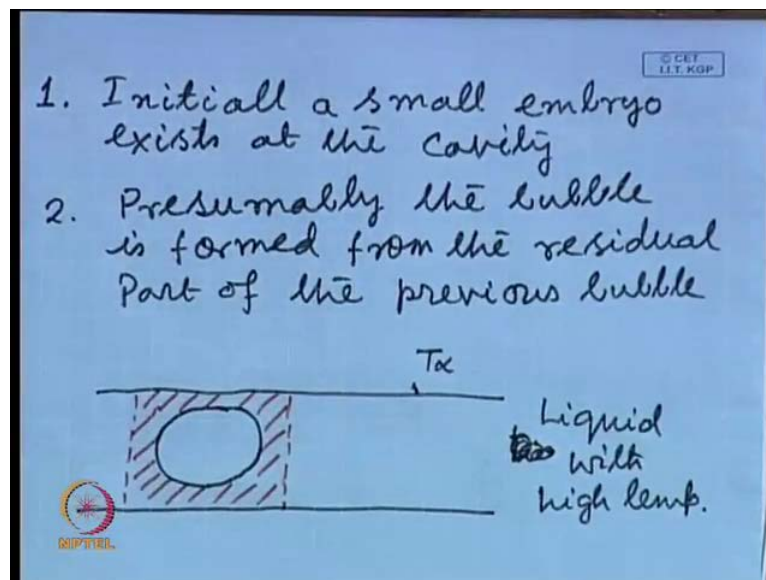 © CET
I.I.T. KGP
1. Initiall a small embryo
exists at the cavity
2. Presumably the bubble
is formed from the residual
Part of the previous bubble
T∝
Liquid
with
high temp.
NPTEL